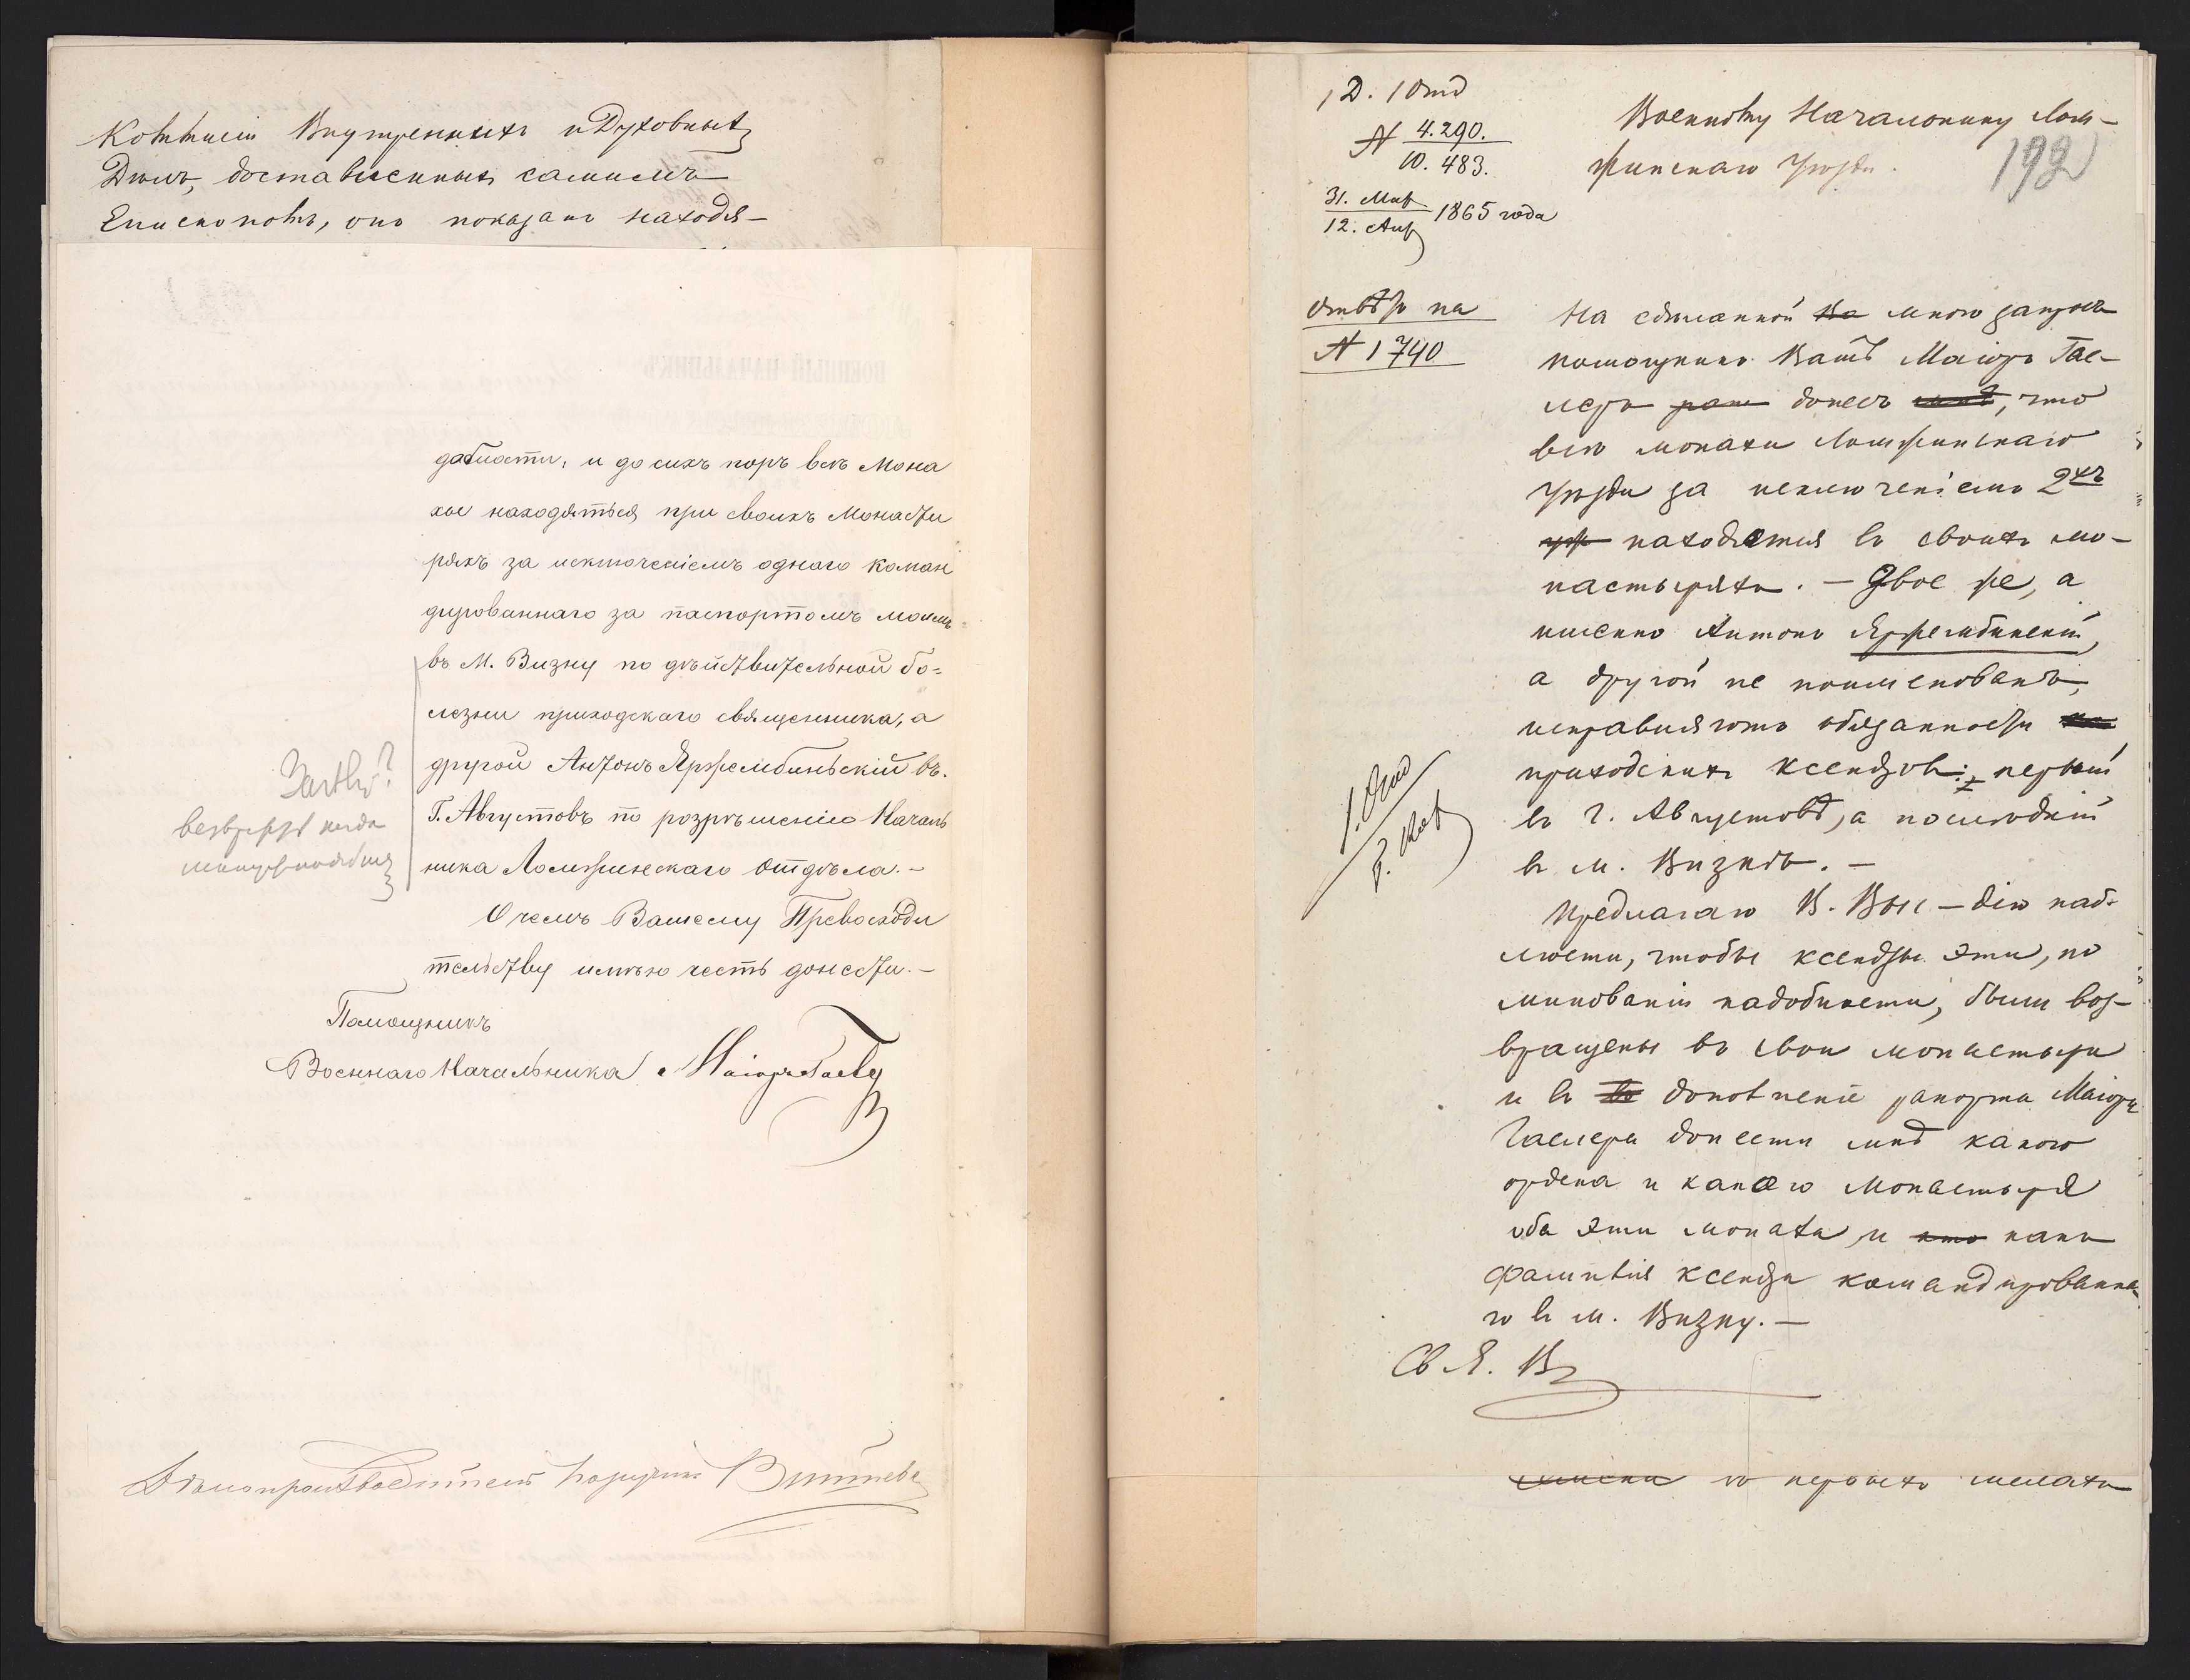 Коммисіи Внутреннихъ и Духовныхъ
Дѣлъ, доставленныхъ самимъ
Епископомъ, онъ показанъ находя-
добности, и до сихъ поръ всѣ Мона
хи находяться при своихъ Монасты
ряхъ за исключеніемъ однаго коман
дированнаго за паспортомъ моимъ
въ М. Визну по дѣйствительной бо=
лезни приходскаго священника, а
другой Антонъ Яржембиньскій въ
Г. Августовъ по розрѣшенію Началь
ника Ломжинскаго Отдѣла.-
О чемъ Вашему Превосходи
тельству имѣю честь донести.-
Помощникъ
Военнаго Начальника Маіоръ
Дѣлопроизводитель Поручикъ
1 Д. 1 Отд
192
Военному Начальнику Лом-
жинскаго Уѣзда.
N 4.290.
10.483.
31. Мар
12. Апр 1865 года
Отвѣтъ на
N 1740
На сдѣланной на мною запросъ
помощникъ Вашъ Маіоръ Гас-
леръ рап донесъ мнѣ, что
всѣ монахи Ломжинскаго
Уѣзда за исключеніемъ 2хъ
находятся въ своихъ мо-
настыряхъ. - Двое же, а
именно Антонъ Яржембинскій,
а другой не поименованъ,
исправляютъ обязанности
приходскихъ ксендзовъ: первый
въ г. Августовѣ, а послѣдній
въ м. Визнѣ. -
Предлагаю В. Выс-дію наб-
люсти, чтобы ксендзы эти, по
минованіи надобности, были воз-
вращены въ свои монастыри
и въ дополненіе рапорта Маіора
Гаслера донести мнѣ какого
ордена и какого Монастыря
оба эти монаха, и кто какъ
фамилія ксендза командированна
го въ м. Визну. -
1. Отд
въ первыхъ числахъ